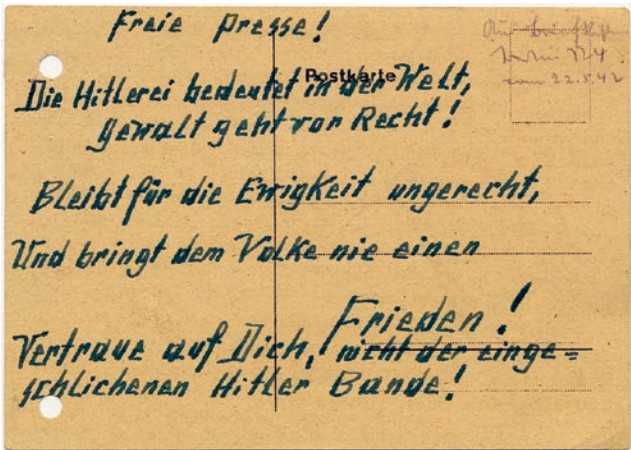 Freie Presse!
Postkarte
vom 22.5.42
Die Hitlerei bedeutet in der Welt,
Gewalt geht vor Recht!
Bleibt für die Ewigkeit ungerecht,
Und bringt dem Volke nie einen
Frieden!
Vertraue auf Dich, nicht der einge=
schlichenen Hitler Bande!